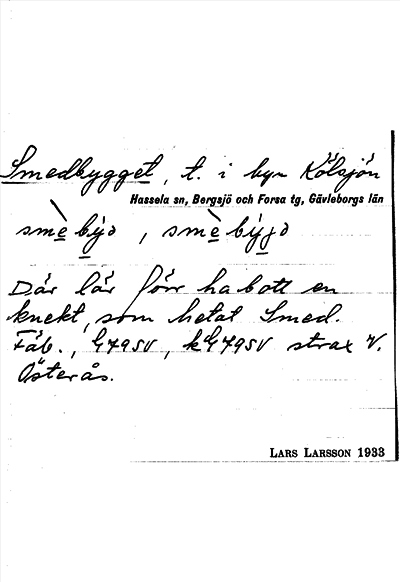 Smedbygget, t. i byn Kölsjön
Hassela sn, Bergsjö och Forsa tg, Gävleborgs län
smèbýo, smèbýjo
Där lär förr ha bott en
knekt, som hetat Smed.
Fäb., G7950, kG7950 strax V.
Österås.
LARS LARSSON 1933